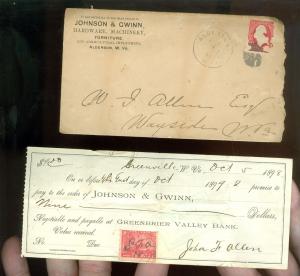 JOHNSON & GWINN,
HARDWARE, MACHINERY,
FURNITURE
AND AGRICULTURAL IMPLEMENTS,
ALDERSON, W. VA.
W. F. Allen Esq
Wayside
W Va.
Greenville, W. Va., Oct 5 1898
On or before the 2nd day of Oct 1898 promise to
pay to the order of JOHNSON & GWINN,
Nine Dollars,
Negotiable and payable at GREENBRIER VALLEY BANK.
Value received.
No. Due
John F Allen